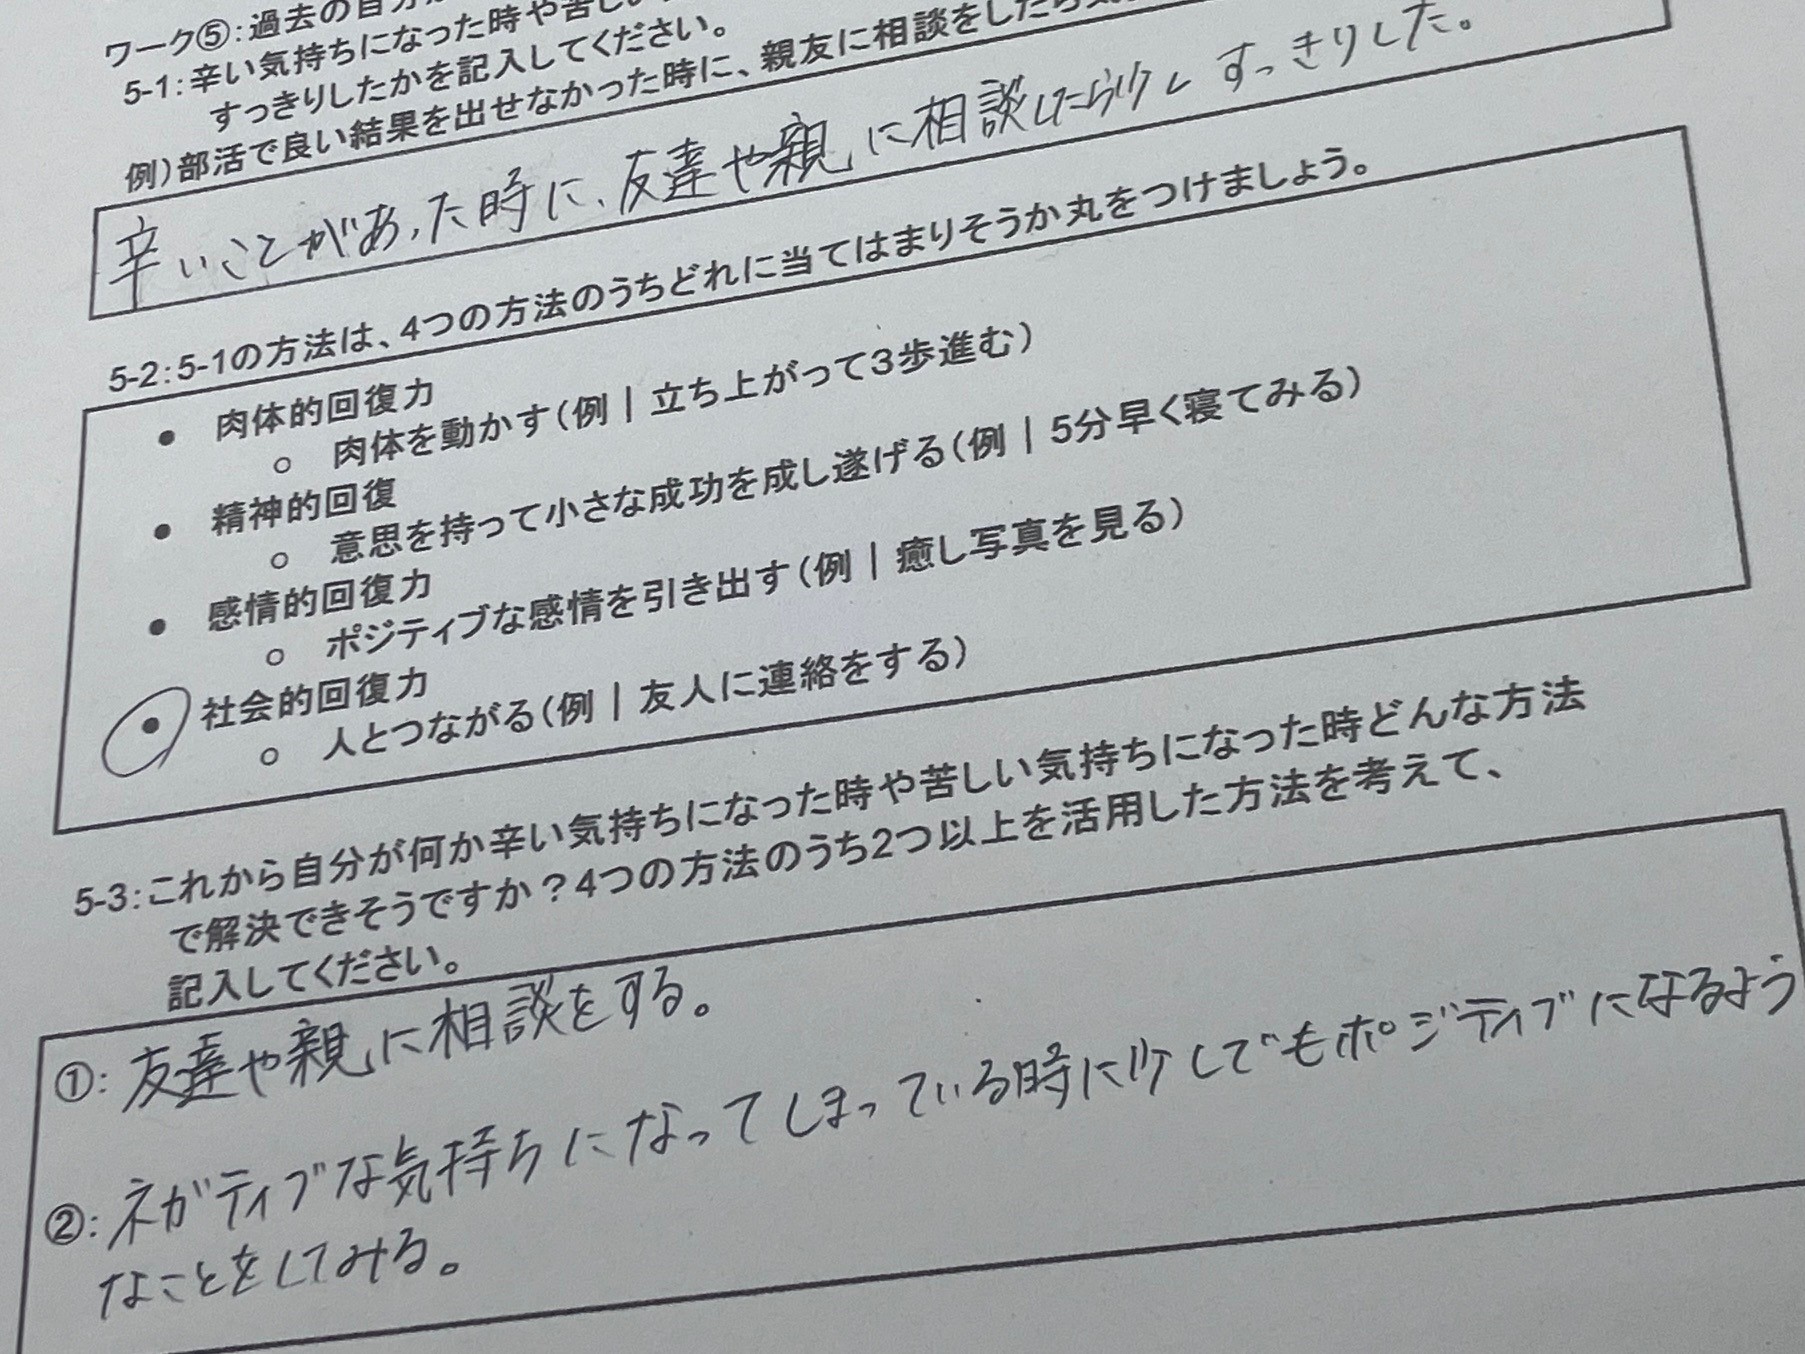 ワーク⑤：過去の自分
5-1：辛い気持ちになった時や苦しい
すっきりしたかを記入してください。
例）部活で良い結果を出せなかった時に、親友に相談をしたら
辛いことがあった時に、友達や親に相談したら少しすっきりした。
5-2：5-1の方法は、4つの方法のうちどれに当てはまりそうか丸をつけましょう。
● 肉体的回復力
○ 肉体を動かす（例｜立ち上がって3歩進む）
● 精神的回復
○ 意思を持って小さな成功を成し遂げる（例｜5分早く寝てみる）
● 感情的回復力
○ ポジティブな感情を引き出す（例｜癒し写真を見る）
● 社会的回復力
○ 人とつながる（例｜友人に連絡をする）
5-3：これから自分が何か辛い気持ちになった時や苦しい気持ちになった時どんな方法
で解決できそうですか？4つの方法のうち2つ以上を活用した方法を考えて、
記入してください。
①：友達や親に相談をする。
②：ネガティブな気持ちになってしまっている時に少しでもポジティブになるよう
なことをしてみる。